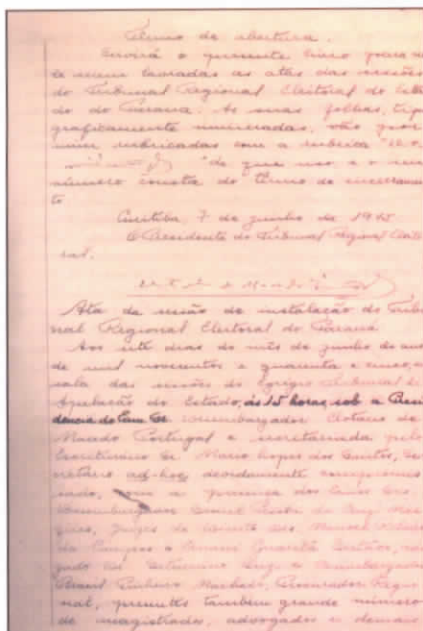 Termo de abertura.
Servirá o presente livro para n
de serem lavradas as atas das sessões
do Tribunal Regional Eleitoral do Esta
do do Paraná. As suas folhas, tipo
graficamente numeradas, vão por
mim rubricadas com a rubrica
" de que uso e o seu
número consta do termo de encerramen
to
Curitiba, 7 de junho de 1945
O Presidente do Tribunal Regional Eleito
ral.
Ata da sessão de instalação do Tribu
nal Regional Eleitoral do Paraná
Aos sete dias do mês de junho do ano
de mil novecentos e quarenta e cinco, na
sala das sessões do Egrégio Tribunal de
Apelação do Estado, ás 15 horas, sob a Presi
dencia do Exmo. Sr. Desembargador Clotario de
Macedo Portugal e secretariada pelo
Escriturario Sr. Mario Lopes dos Santos, Se
cretário ad-hoc, devidamente compromis
sado, com a presença dos Exmos. Srs.
Desembargador
Juizes de Direito Drs. Manoel
de Campos e
gado Dr.
Pinheiro Machado, Procurador Regio
nal, presentes também grande número
de magistrados, advogados e demais